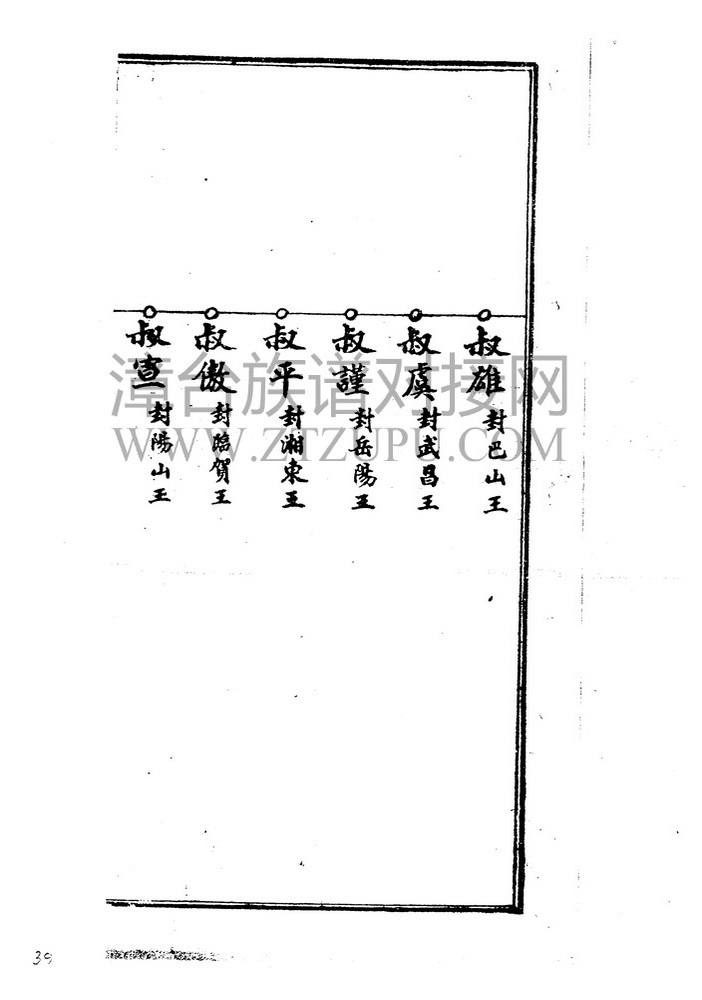 叔雄 封巴山王
叔虞 封武昌王
叔謹 封岳陽王
叔平 封湘東王
叔傲 封臨賀王
叔宣 封陽山王
漳台族谱对接网
WWW.ZTZUPU.COM
39